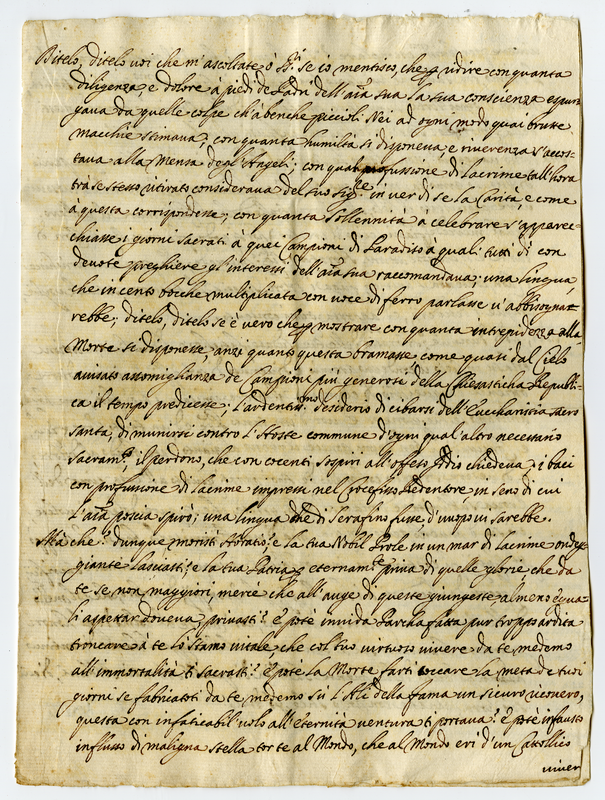 Ditelo, ditelo voi che m'ascoltate ò SS.ri se io mentisco, che p udire con quanta
diligenza e dolore à piedi de Padri dell'aĩa sua la sua conscienza espur-
gava da quelle colpe ch'à benche piccioli Nei ad ogni modo quai brutte
macchie stimava; con quanta humiltà si disponeva, e riverenza s'accos-
tava alla Mensa degl'Angeli: con qual profussione di lacrime tall'hora
trà se stesso ritirato considerava del suo Sig.re in ver di se la Carità e come
à questa corrispondesse; con quanta sollennità à celebrare s'apparec-
chiasse i giorni sacrati à quei Campioni di Paradiso à quali tutti dì con
devote preghiere gl'interessi dell'aĩa sua raccomandava; una lingua
che in cento bocche multiplicata con voce di ferro parlasse vi abbisognar
rebbe; ditelo, ditelo se è vero che p mostrare con quanta intrepidezza alla
Morte si disponesse, anzi quanto questa bramasse come quasi dal Cielo
avisato assomiglianza de Campioni più generosi della Chiesasticha Republi-
ca il tempo predicesse; l'ardentis.mo desiderio di cibarsi dell'Eucharistia sacro
santa, di munirsi contro l'Hoste commune d'ogni qual'altro necessario
sacram.to, il perdono, che con cocenti sospiri all'offeso Iddio chiedeva; i baci
con profussione di lacrime impressi nel Crocefisso Redentore in seno di cui
l'aĩa poscia spirò; una lingua di Serafino fusse d'uopo vi sarebbe.
Mà che? dunque moristi Horatio? e la tua Nobil Prole in un mar di lacrime ondeg-
giante lasciasti? e la tua Patria p eternam.te priva di quelle glorie che da
te se non maggiori, merce che all'auge di queste giungesti, almeno equa
li aspettar doveva, privasti? E potè invida Parcha fatta pur troppo ardita
troncare à te lo stame vitale, che col tuo virtuoso vivere da te medemo
all'immortalità ti sacrasti? E potè la Morte farti toccare la meta de tuoi
giorni se fabricatoti da te medemo su l'Ali della fama un sicuro ricovero,
questa con infaticabil volo all'eternità ventura ti portava? E potè infausto
influsso di maligna stella torte al Mondo, che al Mondo eri d'un Cattolico
viver